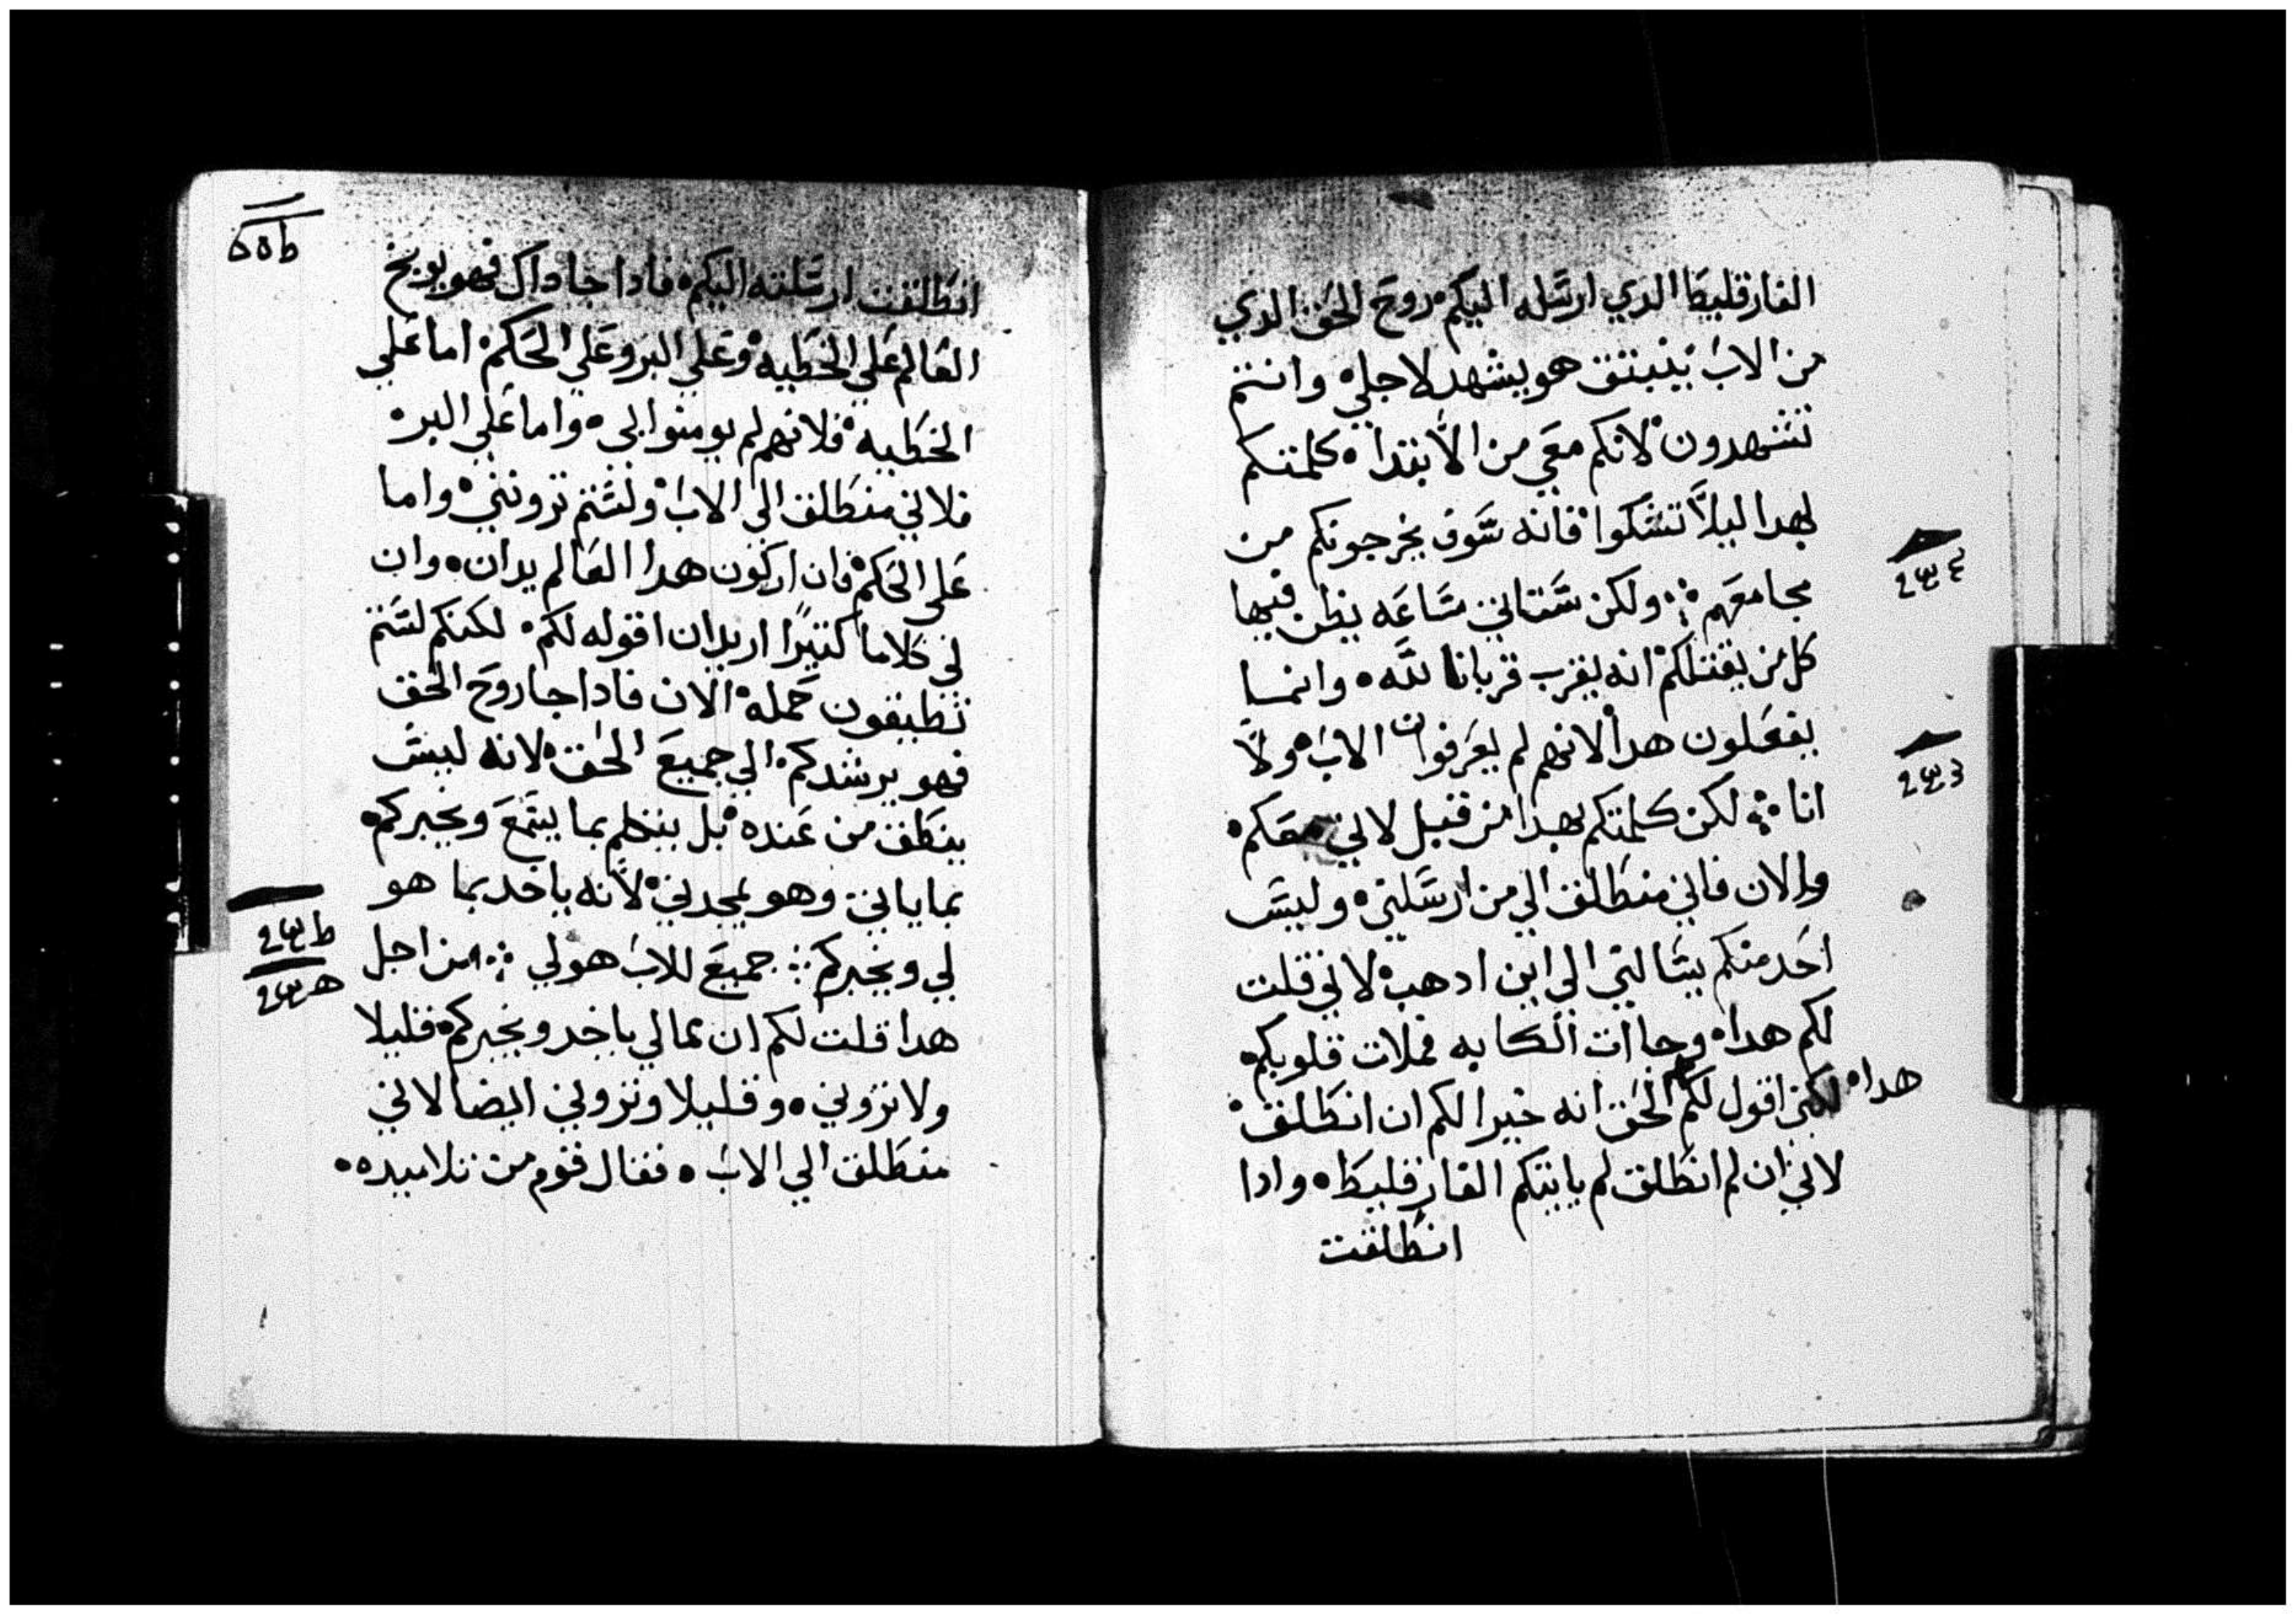 الفارقليطا الدي ارسله اليكم روح الحق الدي
من الاب ينبتق هو يشهد لاجلي وانتم
تشهدون لانكم معي من الابتدا كلمتكم
بهدا ليلا تشكوا فانه سوف يخرجونكم من
مجامعهم ولكن ستاتي ساعه يظن فيها
كل من يقتلكم انه يقرب قربانا لله وانما
يفعلون هدا لانهم لم يعرفوا الاب ولا
انا لكن كلمتكم بهدا من قبل لاني معكم
والان فاني منطلق الي من ارسلني وليس
احد منكم يسالني الي اين ادهب لاني قلت
لكم هدا وجاات الكابه فملات قلوبكم
هدا لكني اقول لكم الحق انه خيرا لكم ان انطلق
لاني ان لم انطلق لم ياتيكم الفارقليط وادا
انطلقت
انطلقت ارسلته اليكم فادا جا داك فهو يوبخ
العالم علي الخطيه وعلي البر وعلي الحكم اما علي
الخطيه فلانهم لم يومنوا بي واما علي البر
فلاني منطلق الي الاب ولستم ترونني واما
علي الحكم فان اركون هدا العالم يدان وان
لي كلاما كتيرا اريد ان اقوله لكم لكنكم لستم
تطيقون حمله الان فادا جا روح الحق
فهو يرشدكم الي جميع الحق لانه ليس
ينطق من عنده بل يتكلم بما يسمع ويخبركم
بما ياتي وهو يمجدني لانه ياخد بما هو
لي ويخبركم جميع للاب هو لي من اجل
هدا قلت لكم ان بمالي ياخد ويخبركم قليلا
ولا تروني وقليلا وتروني ايضا لاني
منطلق الي الاب فقال قوم من تلاميده